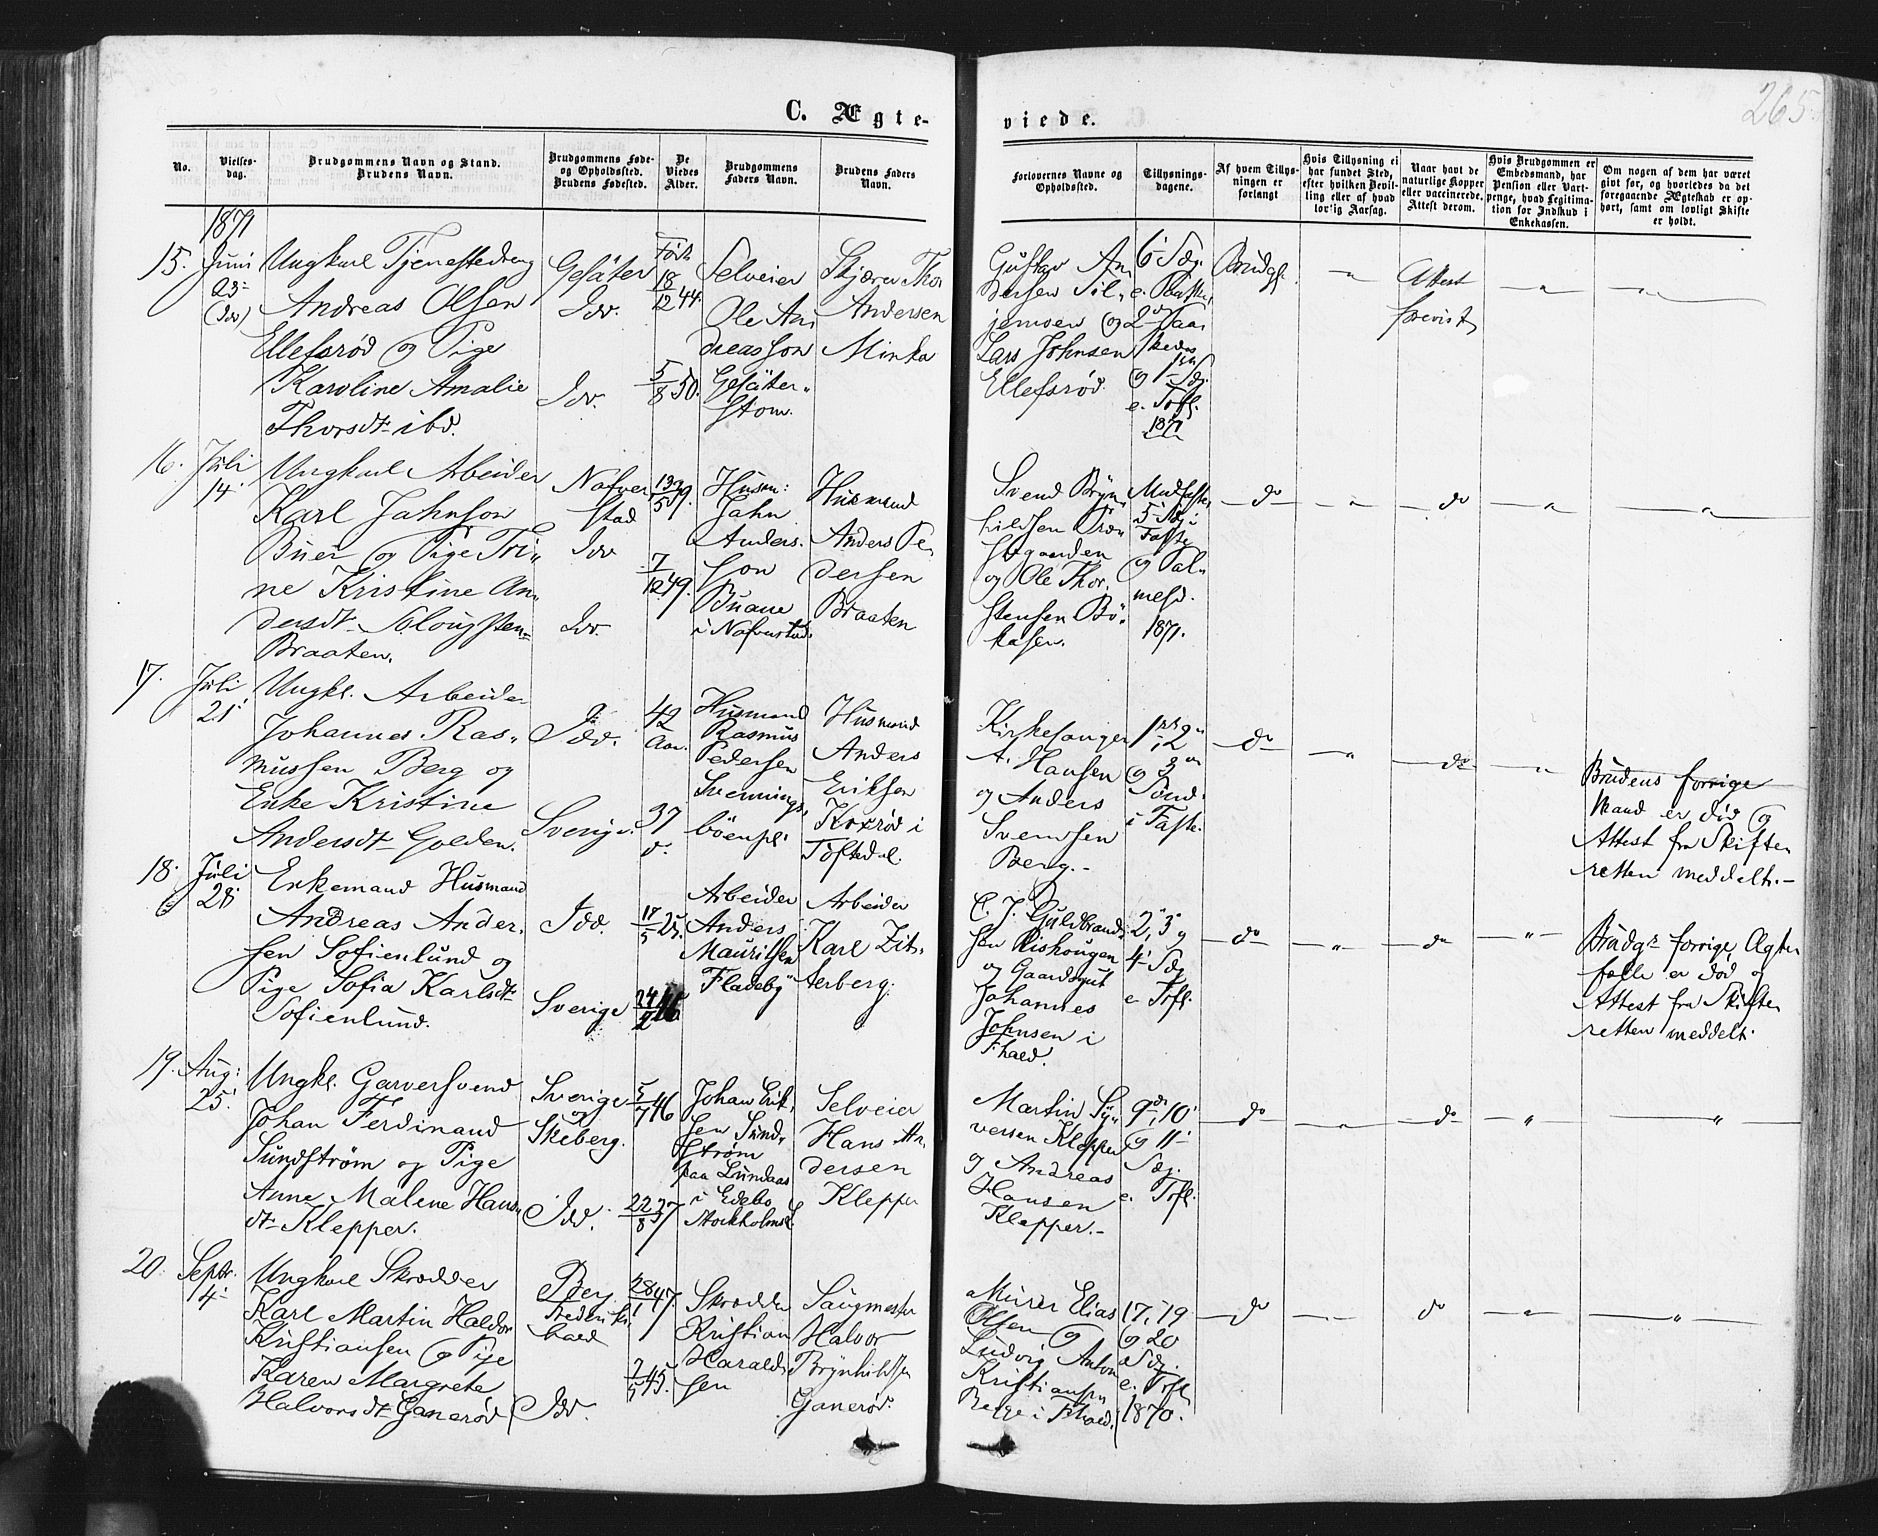 265.
C. Ægte-
viede.
No.
Vielses-
dag.
Brudgommens Navn og Stand.
Brudens Navn.
Brudgommens Føde-
og Opholdssted.
Brudens Fødested.
De
Viedes
Alder.
Brudgommens
Faders Navn.
Brudens Faders
Navn.
Forlovernes Navne og
Opholdssted.
Tillysnings-
dagene.
Af hvem Tillys-
ningen er
forlangt
Hvis Tillysning ei
har fundet Sted,
efter hvilken Bevil-
ling eller af hvad
lovlig Aarsag.
Naar havt de
naturlige Kopper
eller vaccinerede.
Attest derom.
Hvis Brudgommen er
Embedsmand, har
Pension eller Vart-
penge, hvad Legitima-
tion for Indskud i
Enkekassen.
Om nogen af dem har været
gift før, og hvorledes da det
foregaaende Ægteskab er op-
hørt, samt om lovligt Skifte
er holdt.
1871
15.
Juni
23
(Idd)
Ungkarl Tjenestedreng
Andreas Olsen
Ellefsrød og Pige
Karoline Amalie
Thorsdt ibd.
Gesäter
Idd.
Idd.
Født
18/12 44.
5/8 50.
Selveier
Ole An
dreasson
Gesäter-
stom.
Skjærer Thor
Andersen
Minka
Gustav An
dersen Til,
jemoen og
Lars Johnsen
Ellefsrød.
6 Søg.
e. Paaske,
og 1
Søg.
e. Trfl.
1871
Brudg.
"
Attest
forevist
"
"
16.
Juli
14
Ungkarl Arbeider
Karl Jahnson
Buer og Pige Tri-
ne Kristine An-
dersdt Slougsten-
Braaten.
Nafver
stad
Idd
Idd.
13/5 39.
7/12 49.
Husm:
Jahn
Anders.
son
Buane
i Nafverstad.
Husmand
Anders Pe,
dersen
Braaten
Svend Bryn-
hildsen
og Ole Thor,
stensen Bö-
kasen.
5 Søg i
Faste
og Pal-
mesd.
1871.
do
"
do
"
"
17.
Juli
21
Ungkl. Arbeider
Johannes Ras-
mussen Berg og
Enke Kristine
Andersdt Golden.
Idd.
Sverige.
42
Aar.
37
d.
Husmand
Rasmus
Pedersen
Svennings,
böenpl.
Husmand
Anders
Eriksen
Koxrød i
Töftedal.
Kirkesanger
A. Hansen
og Anders
Svendsen
Berg.-
1, 2
og 3
Sönd.
i Faste.
do
"
do
"
Brudens forrige
Mand er död og
Attest fra Skifte
retten meddelt.-
18.
Juli
28
Enkemand Husmand
Andreas Ander,
sen Sofienlund og
Pige Sofia Karlsdt
Sofienlund.
Idd.
Sverige
17/5 25.
24/2 46.
Arbeider
Anders
Mauritsen
Fladeby
Arbeider
Karl Zit-
terberg.
C. J. Guldbrand-
sen Rishougen
og Gaardsgut
Johannes
Johnsen i
Fhald.
2, 3 og
4 Søg
e. Trfl.
do
"
do
"
Brudgs forrige Ægte
fælle er död og
Attest fra Skifte
retten meddelt.
19.
Aug:
25.
Ungkl. Garversvend
Johan Ferdinand
Sundström og Pige
Anne Malene Hans,
dt Klepper.
Sverige
og
Skeberg.
Idd.
5/7 46
22/8 37
Johan Erik,
sen Sund-
ström
paa Lundaas
i Edebo
Stockholmsl.
Selveier
Hans An,
dersen
Klepper
Martin Sy-
versen Klepper
og Andreas
Hansen
Klepper.-
9de, 10
og 11
Søg.
e. Trfl.
do
"
do
"
"
20.
Septr.
4
Ungkarl Skrædder
Karl Martin Haldor
Kristiansen og Pige
Karen Margrete
Halvorsdt Ganerød
Berg
Frederiks
hald
Idd.
28/1 47.
7/5 45.
Skrædder
Kristian
Harald-
sen
Saugmester
Halvor
Brynhildsen
Ganerød.
Murer Elias
Olsen og
Ludvig Anton
Kristiansen
Berge i Fhald.
17, 19
og 20
Søg.
e. Trfl.
1870.
do
"
do
"
"